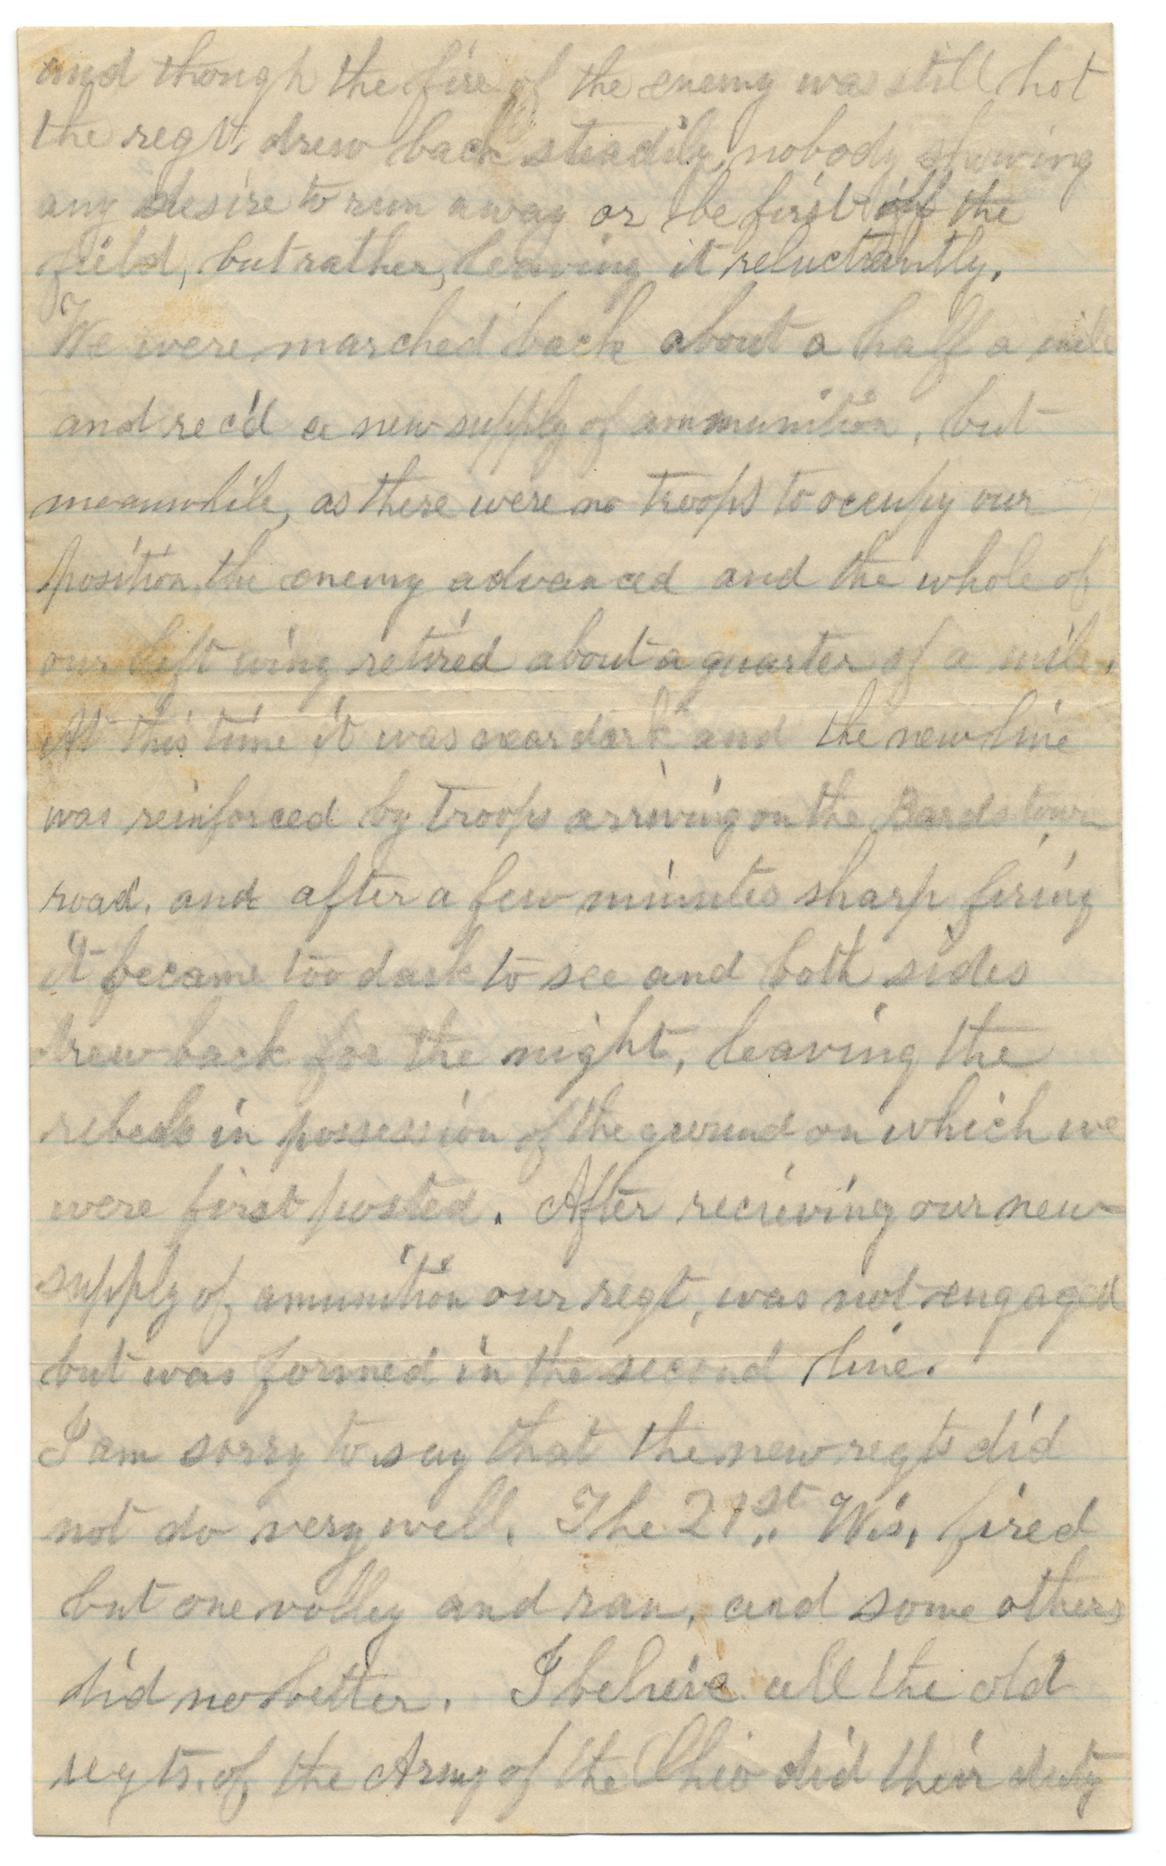 and though the fire of the enemy was still hot
the regt. drew back steadily, nobody showing
any desire to run away or be first off the
field, but rather, leaving it reluctantly.
We were marched back about a half a mile
and rec'd a new supply of ammunition, but
meanwhile, as there were no troops to occupy our
position, the enemy advanced and the whole of
our left wing retired about a quarter of a mile.
At this time it was near dark and the new line
was reinforced by troops arriving on the Bardstown
road, and after a few minutes sharp firing
it became too dark to see and both sides
drew back for the night, leaving the
rebels in possession of the ground on which we
were first posted. After recieving our new
supply of amunition our regt, was not engaged
but was formed in the second line.
I am sorry to say that the new regts did
not do very well. The 21st. Wis, fired
but one volley and ran, and some others
did no better. I beleive all the old
regts. of the Army of the Ohio did their duty